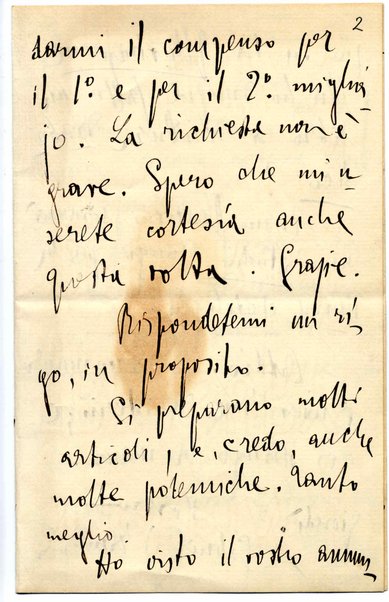 2
darmi il compenso per
il 1º e per il 2º miglia
jo. La richiesta non è
grave. Spero che mi u
serete cortesia anche
questa volta. Grazie.
Rispondetemi un ri
go, in proposito.
Si preparano molti
articoli, e, credo, anche
molte polemiche. Tanto
meglio.
Ho visto il vostro annun